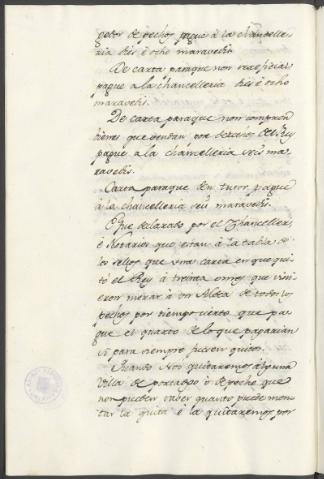 pector de pechos pague à la chancelle-
ria diés è ocho maravedis.
De carta paraque non sea oficial
pague a la chancelleria diés è ocho
maravedis.
De carta paraque non compren
bienes que vendan por deudo del Rey
pague a la chancelleria seis ma-
ravedis.
Carta paraque den tutor pague
à la chancelleria seis maravedis.
E fue declarado por el Chanceller,
è Notarios que estan à la tabla de
los sellos que una carta en que qui-
tó el Rey à treinta omes que vini-
eron morar à un Aldea de todos los
pechos por tiempo cierto que pa-
gue el quarto de lo que pagarian
si para siempre fuesen quitos.
Quando Nos quitaremos alguna
Villa de portadgo ò de pecho que
non pueden saber quanto puede mon-
tar la quita è la quitaremos por